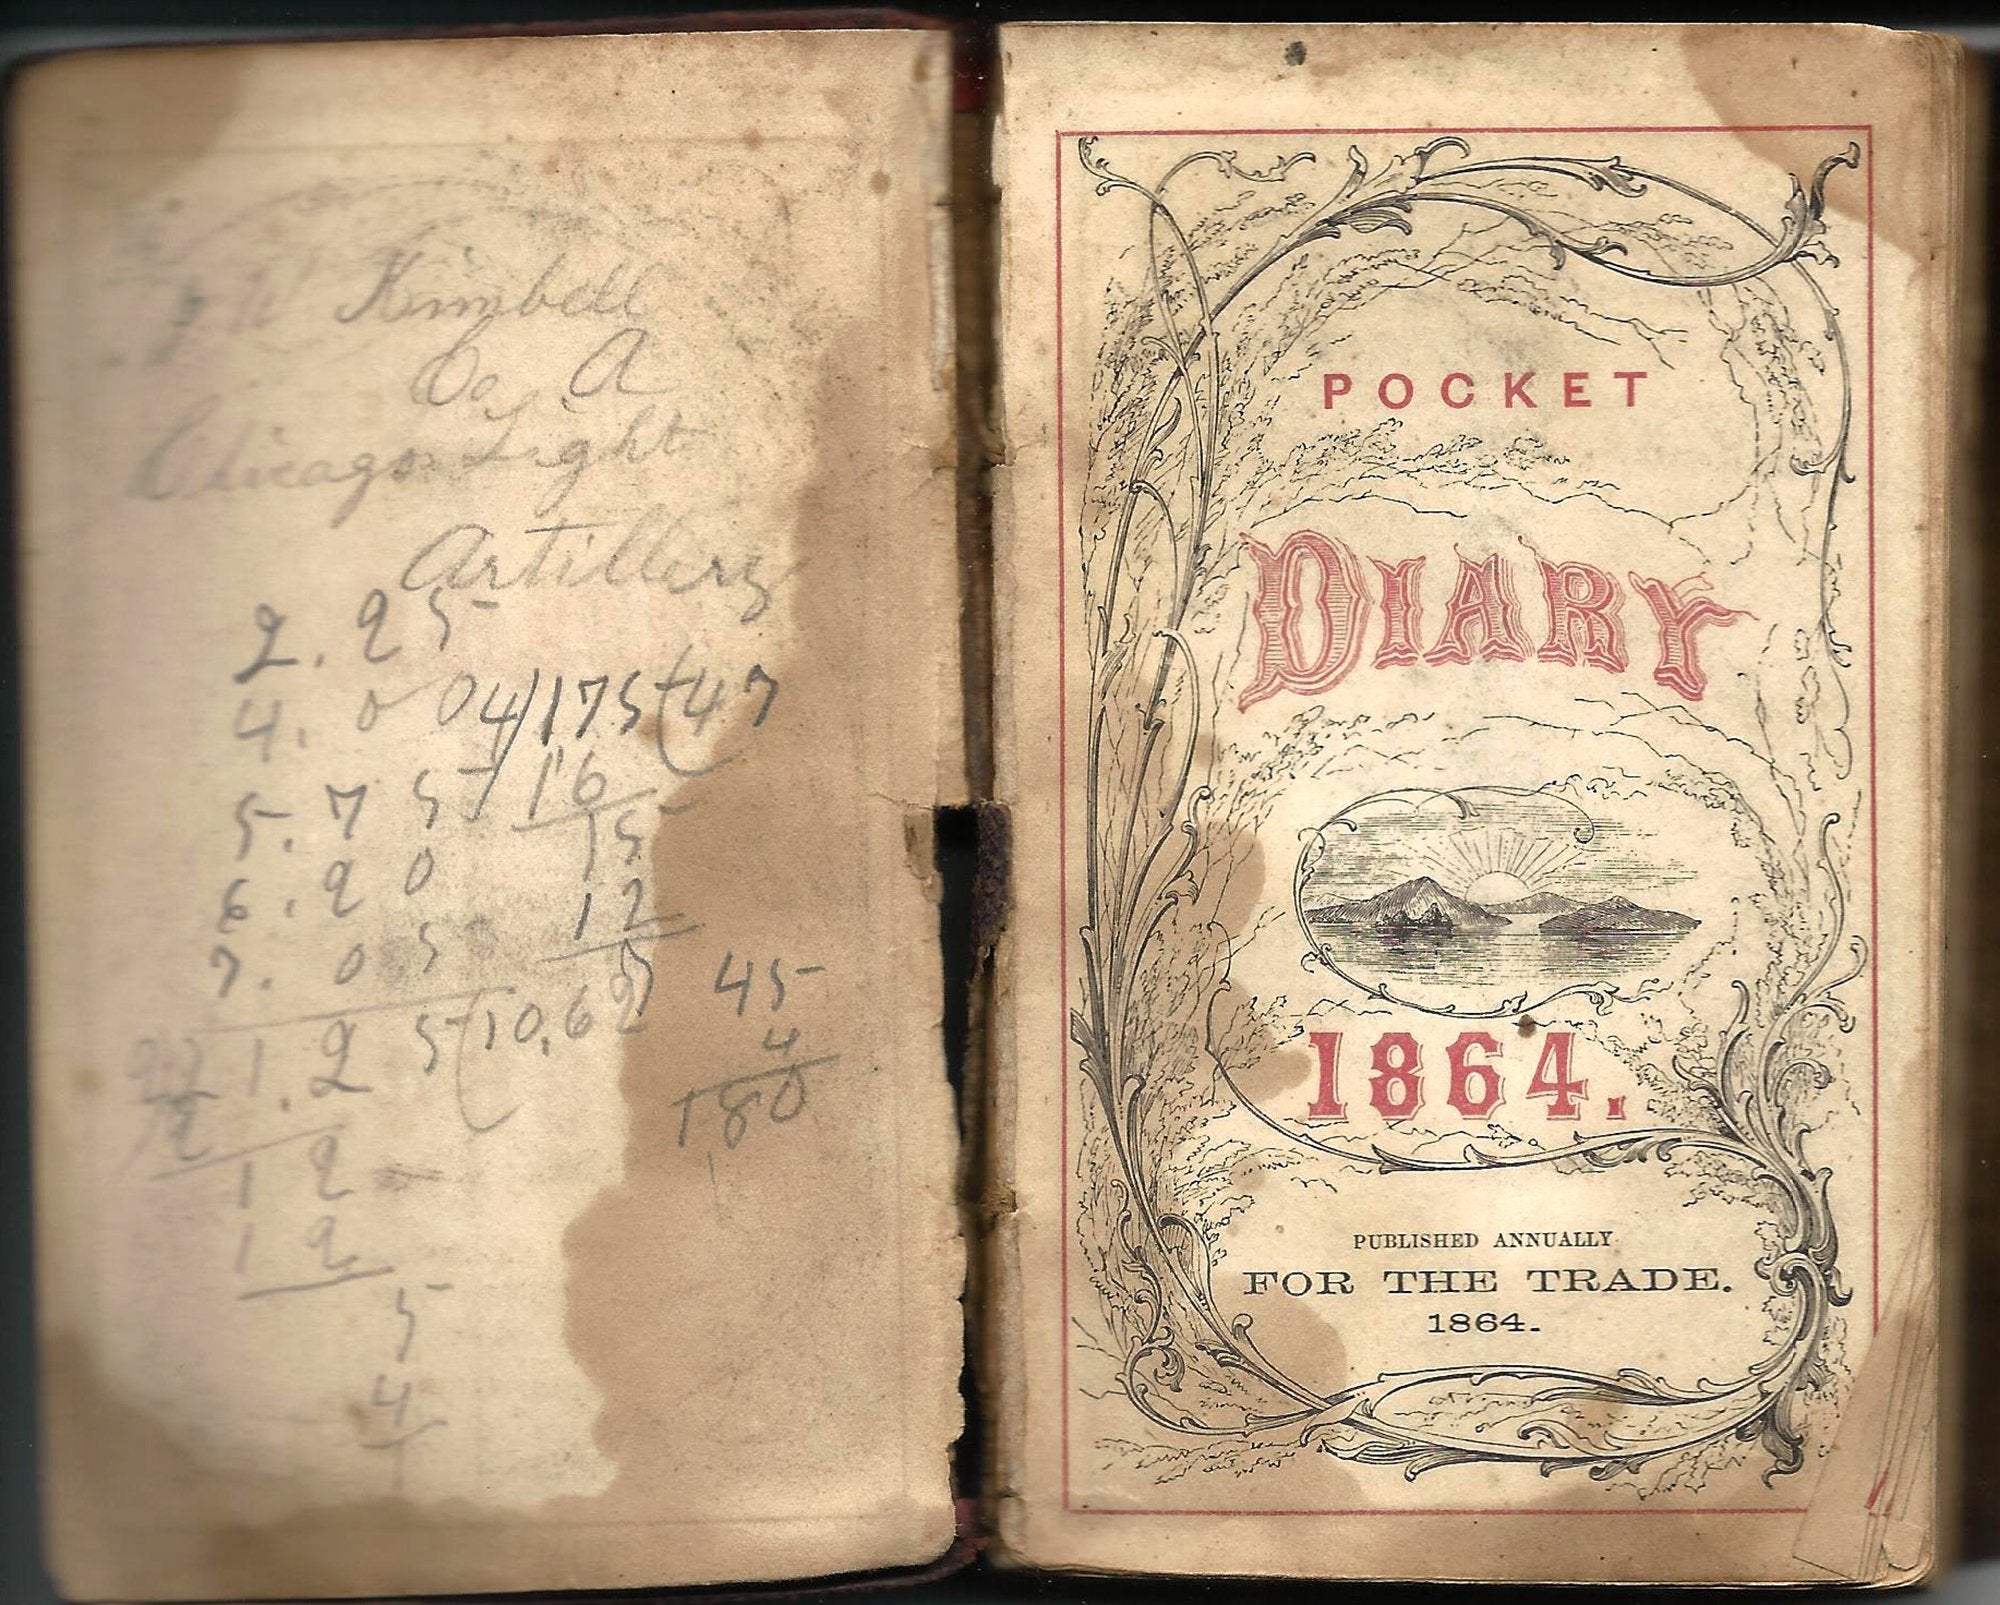 Kimbell
Co. A
Chicago Light
Artillery
2.25
4.00
5.75
6.20
7.05
21.25(10.62
2
12
12
5
4
4)175(47
16
15
12
45
4
180
POCKET
DIARY
1864.
PUBLISHED ANNUALLY
FOR THE TRADE.
1864.